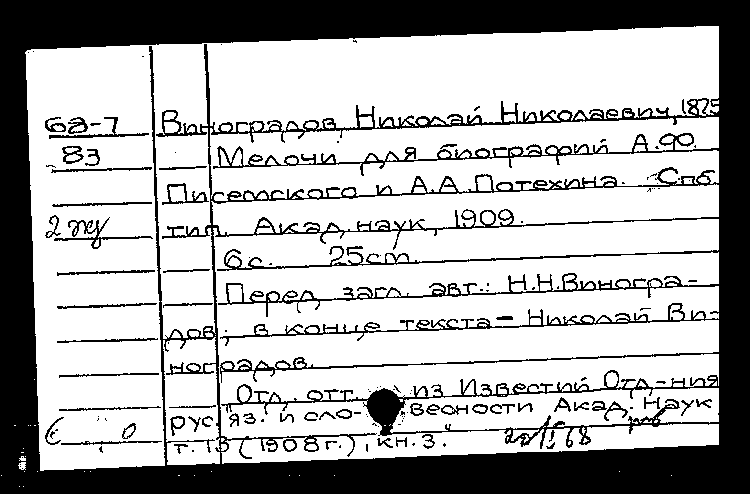 68-7 Виноградов, Николай Николаевич, 1875
83 Мелочи для биографий А.Ф.
Писемского и А.А.Потехина. Спб.
тип. Акад. наук, 1909.
6с. 25cm.
Перед загл. авт.: Н.Н.Виногра-
дов; в конце текста - Николай Ви-
ноградов.
"Отд. отт. из Известий Отд-ния
рус. яз. и сло- весности Акад. Наук
т. 13 (1908г.), кн. 3."